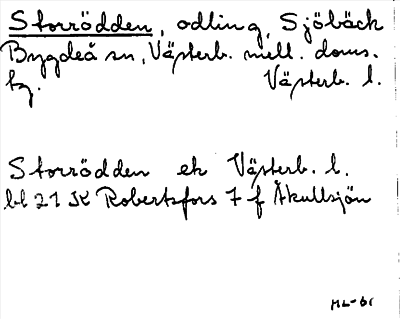 Storrödden, odling, Sjöbäck
Bygdeå sn, Västerb. mell. doms.
tg. Västerb. l.
Storrödden ek Västerb. l.
bl 21 K Robertsfors 7 f Åkullsjön
ML-61